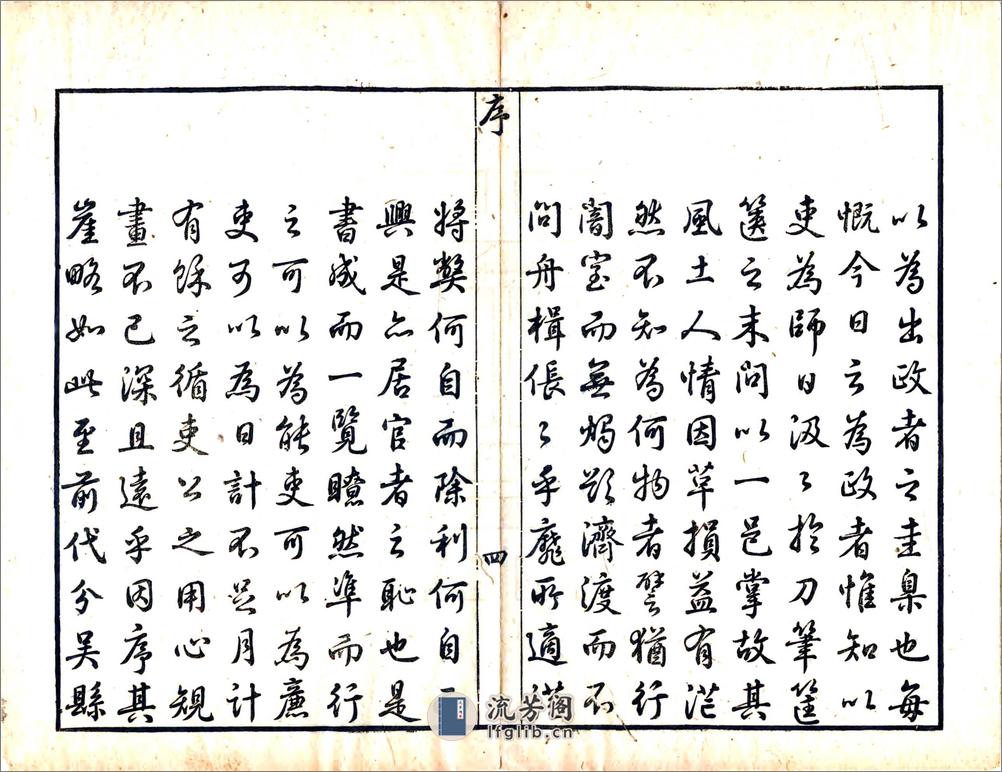 以為出政者之圭臬也每
慨今日之為政者惟知以
吏為師日汲汲於刀筆筐
篋之末問以一邑掌故其
風土人情因革損益有茫
然不知為何物者譬猶行
闇室而無燭欲濟渡而不
問舟楫倀倀乎靡所適從
序
四
將獘何自而除利何自而
興是亦居官者之恥也是
書成而一覽瞭然準而行
之可以為能吏可以為廉
吏可以為日計不足月計
有餘之循吏公之用心規
畫不已深且遠乎因序其
崖略如此至前代分吳縣
流芳阁
lfglib.cn